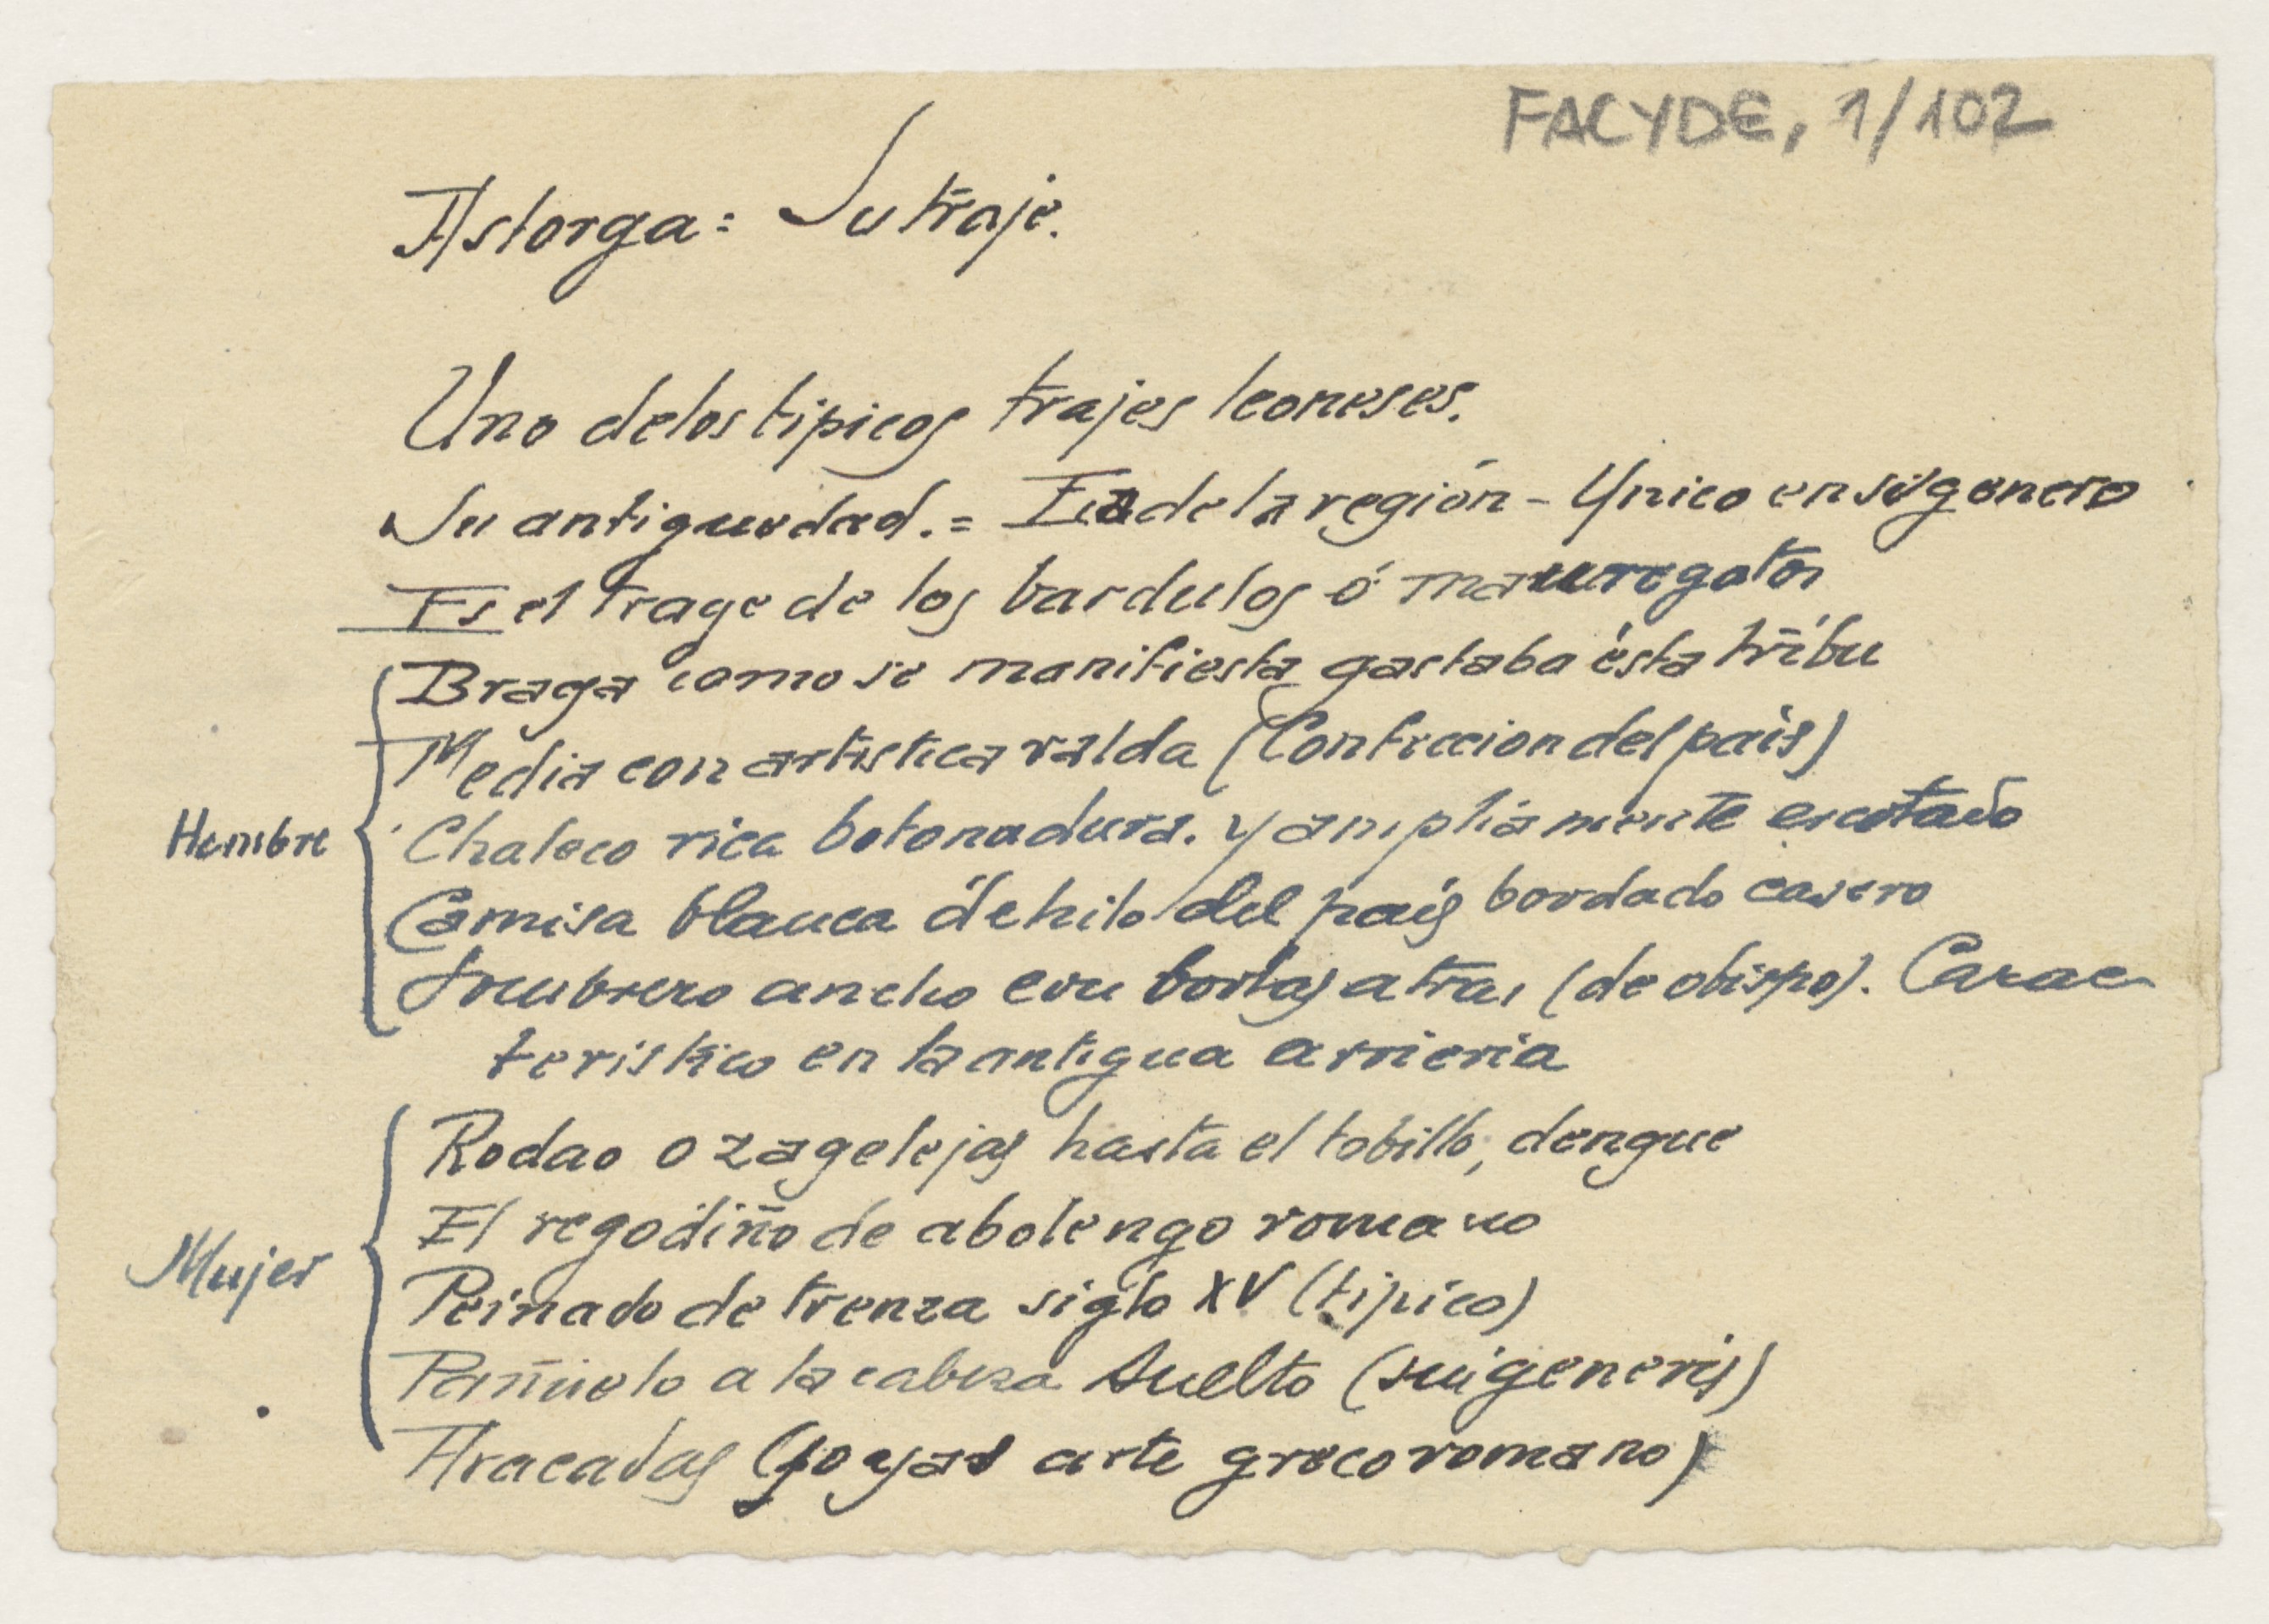 FACYDE, 1/102
Astorga: Su traje.
Uno de los tipicos trajes leoneses.
Su antiguedad. = de la región - Unico en su genero
Es el trage de los bardulos ó maurogatos
Braga como se manifiesta gastaba ésta tribu
Media con artistica valda (Confeccion del pais)
Hombre
Chaleco rica botonadura. y ampliamente escotado
Camisa blanca de hilo del pais bordado casero
Sombrero ancho con borlas atras (de obispo). Carac
teristico en la antigua arrieria
Rodao o zagelejas hasta el tobillo, dengue
El regodiño de abolengo romano
Mujer
Peinado de trenza siglo XV (tipico)
Pañuelo a la cabeza suelto (sui generis)
Aracadas (joyas arte greco romano)